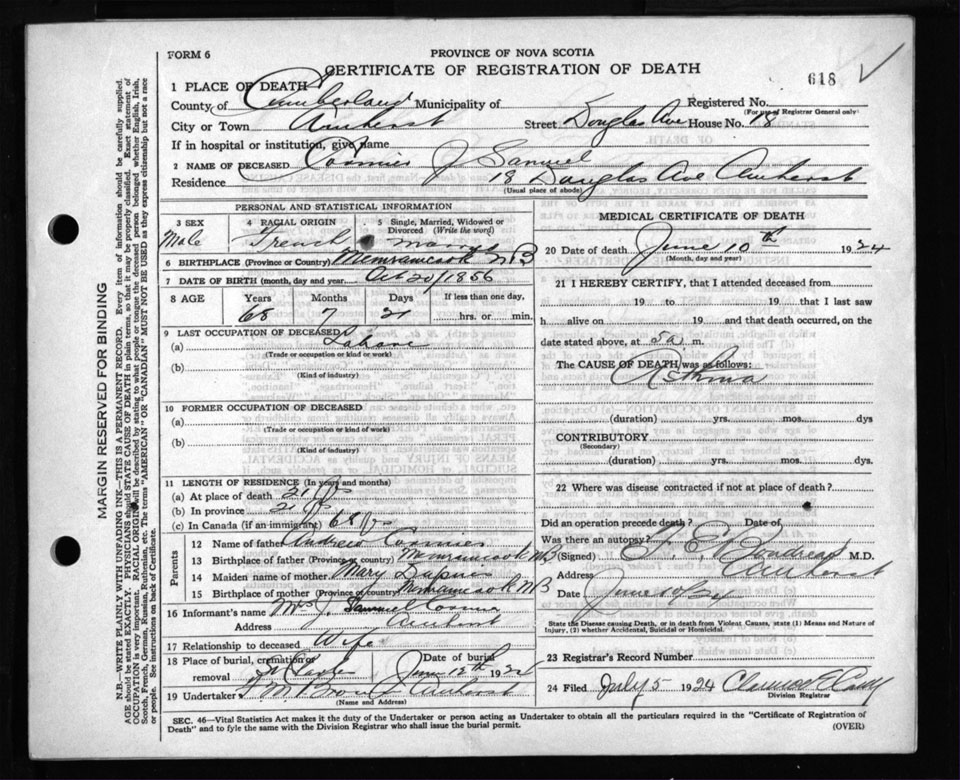 FORM 6
PROVINCE OF NOVA SCOTIA
CERTIFICATE OF REGISTRATION OF DEATH
618
1 PLACE OF DEATH
County of Cumberland Municipality of Registered No.
(For use of Registrar General only)
City or Town Amherst Street Douglas Ave House No. 18
If in hospital or institution, give name
2 NAME OF DECEASED Cormier J Samuel
Residence 18 Douglas Ave Amherst
(Usual place of abode)
PERSONAL AND STATISTICAL INFORMATION
3 SEX
Male
4 RACIAL ORIGIN
French
5 Single, Married, Widowed or Divorced (Write the word)
married
6 BIRTHPLACE (Province or Country) Memramcook N B
7 DATE OF BIRTH (month, day and year) Oct 20/1856
8 AGE Years Months Days If less than one day,
68 7 21 hrs. or min.
9 LAST OCCUPATION OF DECEASED
(a) Labore
(Trade or occupation or kind or work)
(b)
(Kind of industry)
10 FORMER OCCUPATION OF DECEASED
(a)
(Trade or occupation or kind of work)
(b)
(Kind of industry)
11 LENGTH OF RESIDENCE (In years and months)
(a) At place of death 21 yrs
(b) In province 21 yrs
(c) In Canada (if an immigrant) 68 yrs
Parents
12 Name of father Andrew Cormier
13 Birthplace of father (Province or country) Memramcook N B
14 Maiden name of mother Mary Dupuis
15 Birthplace of mother (Province or country) Memramcook N B
16 Informant's name Mrs J. Samuel Cormier
Address Amherst
17 Relationship to deceased Wife
18 Place of burial, cremation or removal Date of burial June 12th 1924
19 Undertaker Brown Amherst
(Name and Address)
MEDICAL CERTIFICATE OF DEATH
20 Date of death June 10th 1924
(Month, day and year)
21 I HEREBY CERTIFY, that I attended deceased from
19 to 19 that I last saw
h alive on 19 and that death occurred, on
date stated above, at 5 a. m.
The CAUSE OF DEATH was as follows:
Asthma
(duration) yrs. mos. dys
CONTRIBUTORY
(Secondary)
(duration) yrs. mos. dys.
22 Where was disease contracted if not at place of death?
Did an operation precede death? Date of
Was there an autopsy?
(Signed) Boudreau M.D.
Address Amherst
Date June 10/24
State the Disease causing Death, or in death from Violent Causes, state (1) Means and Nature of Injury, (2) whether Accidental, Suicidal or Homicidal.
23 Registrar's Record Number
24 Filed July 5 1924 Clarence E Casey
Division Registrar
SEC. 46—Vital Statistics Act makes it the duty of the Undertaker or person acting as Undertaker to obtain all the particulars required in the "Certificate of Registration of
Death" and to fyle the same with the Division Registrar who shall issue the burial permit.
(OVER)
MARGIN RESERVED FOR BINDING
N.B.—WRITE PLAINLY WITH UNFADING INK—THIS IS A PERMANENT RECORD. Every item of information should be carefully supplied.
AGE should be stated EXACTLY. PHYSICIANS should STATE CAUSE OF DEATH in plain terms, so that it may be properly classified. Exact statement of
OCCUPATION is very important. RACIAL ORIGIN will be described by stating to what people or tongue the deceased person belonged whether English, Irish,
Scotch, French, German, Russian, Ruthenian, etc. The terms "AMERICAN" OR "CANADIAN" MUST NOT BE USED as they express citizenship but not a race
or people. See instructions on back of Certificate.